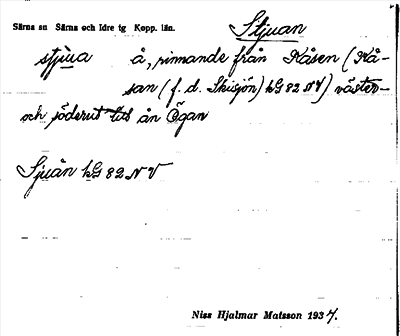 Särna sn Särna och Idre tg Kopp. län. Stjuan
stjùa å, rinnande från Kåsen (Kå-
san (f. d. Skisjön) kG 82 NV) väster-
och söderut till ån Ögan
Sjuån kG 82 NV
Niss Hjalmar Matsson 1937.